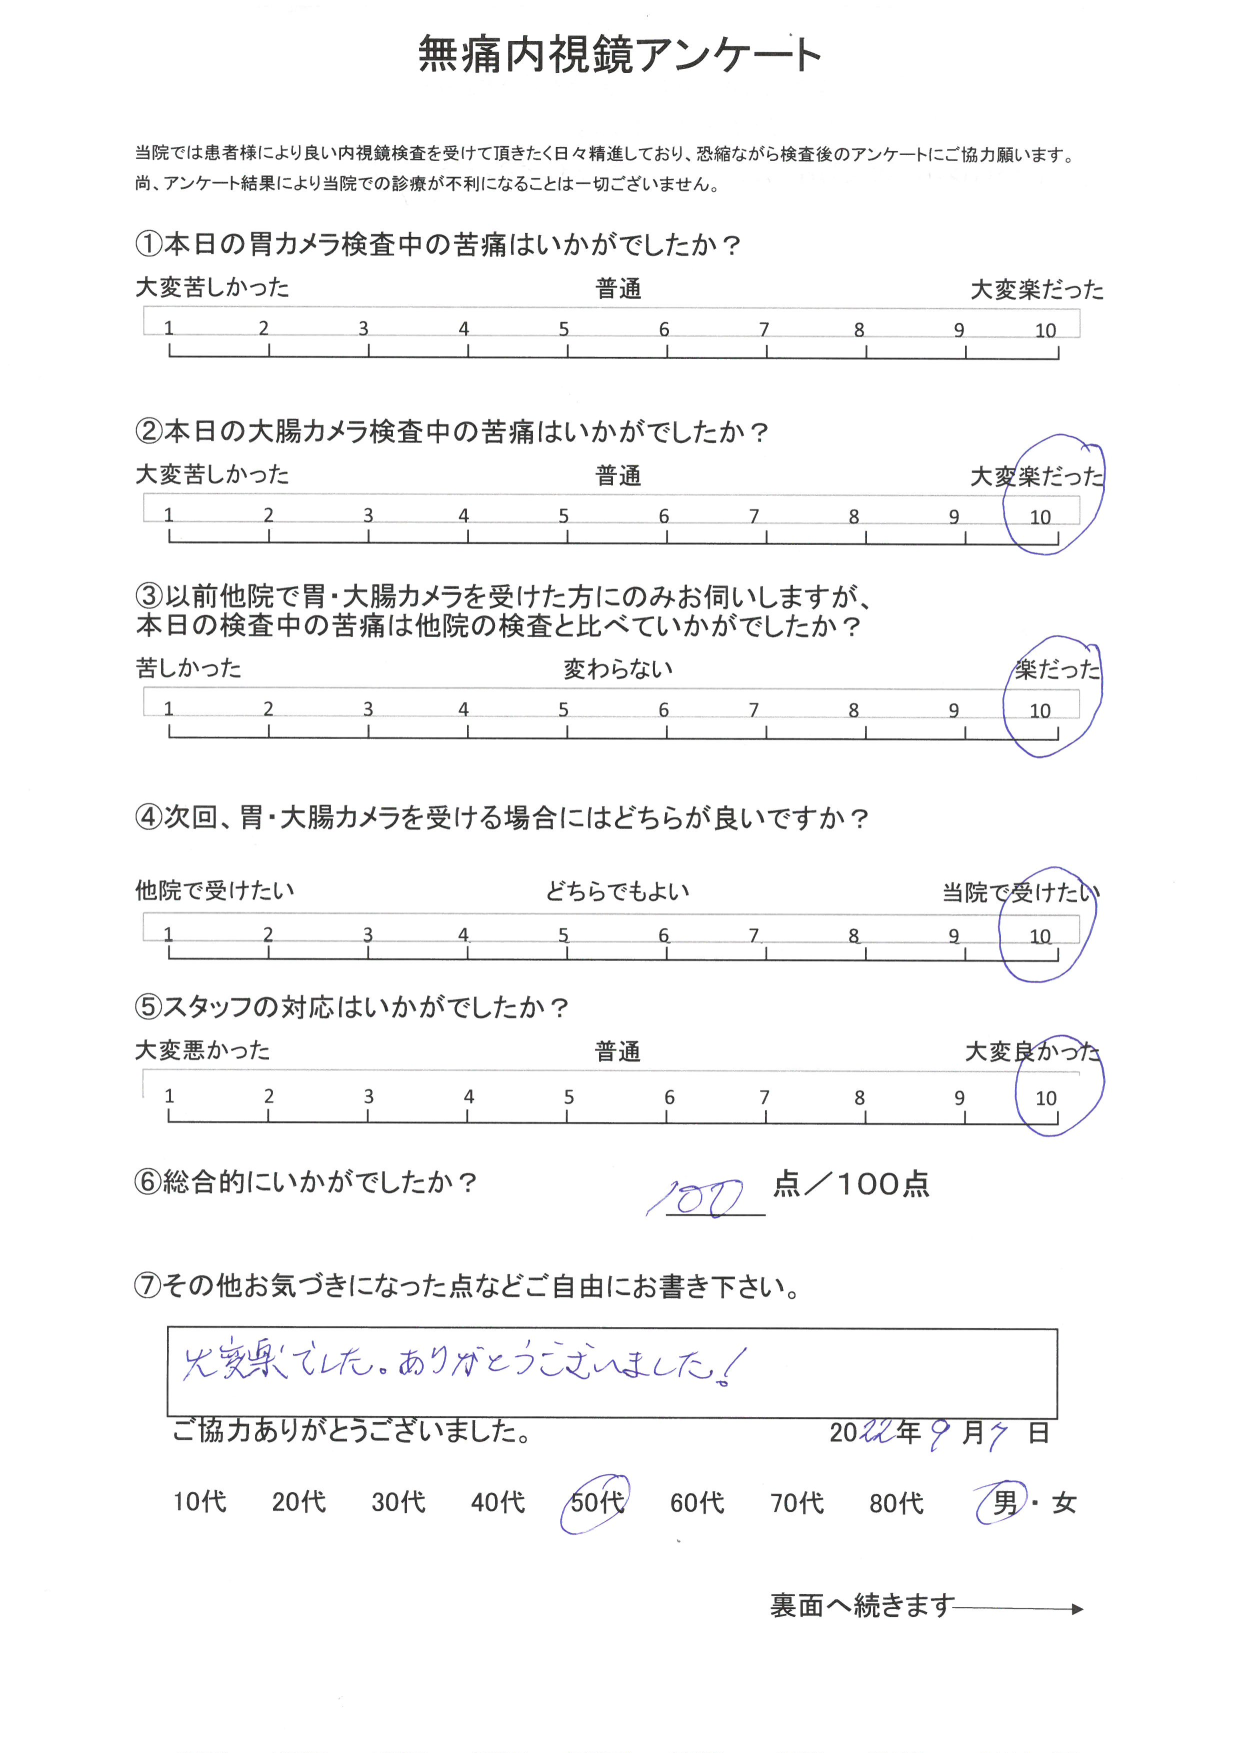 無痛内視鏡アンケート
当院では患者様により良い内視鏡検査を受けて頂きたく日々精進しており、恐縮ながら検査後のアンケートにご協力願います。
尚、アンケート結果により当院での診療が不利になることは一切ございません。
①本日の胃カメラ検査中の苦痛はいかがでしたか？
大変苦しかった 普通 大変楽だった
1 2 3 4 5 6 7 8 9 10
②本日の大腸カメラ検査中の苦痛はいかがでしたか？
大変苦しかった 普通 大変楽だった
1 2 3 4 5 6 7 8 9 10
③以前他院で胃・大腸カメラを受けた方にのみお伺いしますが、
本日の検査中の苦痛は他院の検査と比べていかがでしたか？
苦しかった 変わらない 楽だった
1 2 3 4 5 6 7 8 9 10
④次回、胃・大腸カメラを受ける場合にはどちらが良いですか？
他院で受けたい どちらでもよい 当院で受けたい
1 2 3 4 5 6 7 8 9 10
⑤スタッフの対応はいかがでしたか？
大変悪かった 普通 大変良かった
1 2 3 4 5 6 7 8 9 10
⑥総合的にいかがでしたか？ 100 点／100点
⑦その他お気づきになった点などご自由にお書き下さい。
大変楽でした。ありがとうございました！
ご協力ありがとうございました。 2022年9月7日
10代 20代 30代 40代 50代 60代 70代 80代 男・女
裏面へ続きます